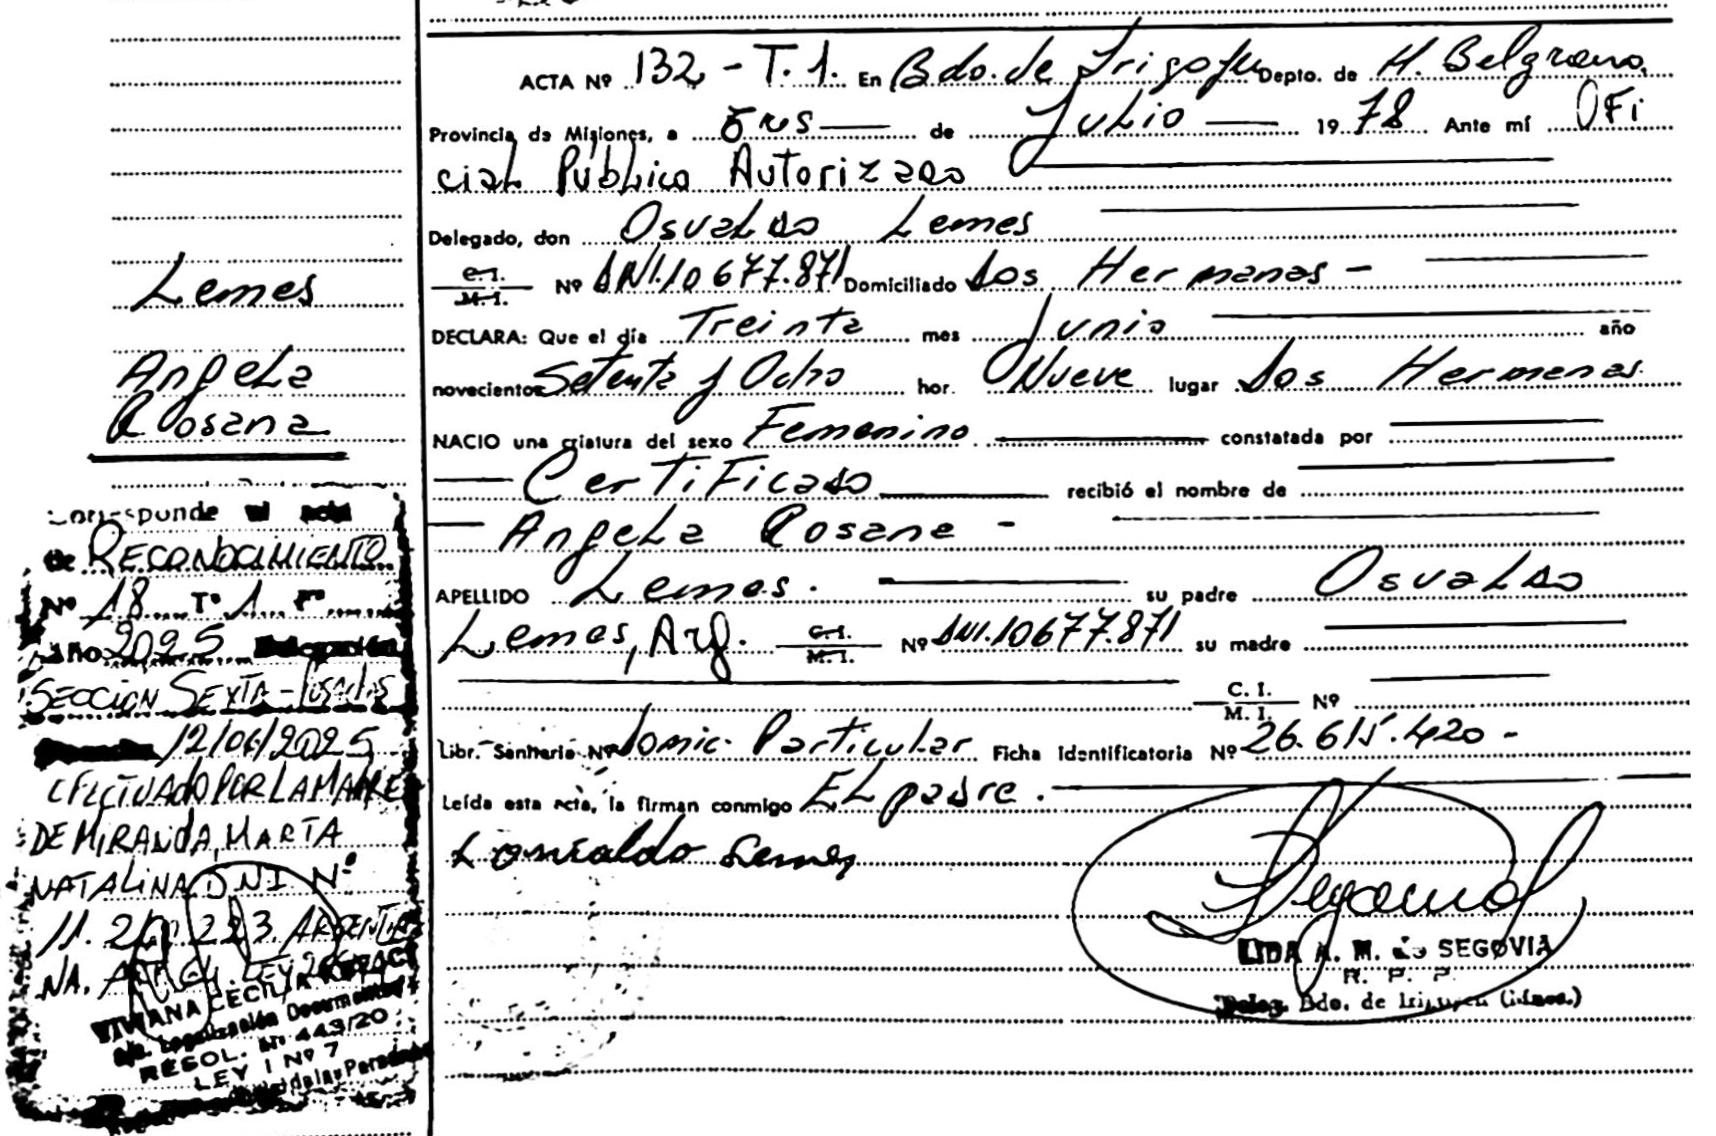 ACTA Nº 132 - T. 1. En Bdo. de Irigoyen Depto. de H. Belgrano.
Provincia de Misiones, a Tres de Julio 1978 Ante mí Ofi
cial Público Autorizado
Delegado, don Osvaldo Lemes
C.I. M.I. Nº DNI. 10677.871 Domiciliado Dos Hermanas -
DECLARA: Que el día Treinta mes Junio año
novecientos Setenta y Ocho hor. Nueve lugar Dos Hermanas
NACIO una criatura del sexo Femenino constatada por
Certificado recibió el nombre de
Angela Rosana -
APELLIDO Lemes. su padre Osvaldo
Lemes, Arg. C.I. M.I. Nº DNI. 10677.871 su madre
C. I. M. I. Nº
Libr. Sanitaria Nº Domic. Particular Ficha Identificatoria Nº 26.615.420 -
Leída esta acta, la firman conmigo El padre.
Lemes
LIDA A. M. de SEGOVIA
R. P. P.
Deleg. Bdo. de Irigoyen (Mnes.)
Lemes
Angela
Rosana
Corresponde al acta
de RECONOCIMIENTO
Nº 18 Tº 1 Fº
Año 2025 Delegación
SECCION SEXTA -
12/06/2025
EFECTUADO POR LA MADRE
DE MIRANDA, MARTA
NATALINA DNI Nº
11. 223. ARGENTI
NA. LEY
VIVIANA CECILIA
Legalización Documentos
RESOL. Nº 443/20
LEY I Nº 7